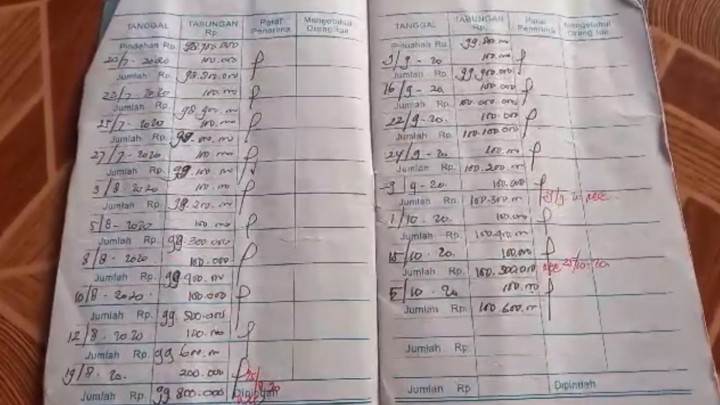 TANGGAL TABUNGAN Rp. Paraf Penerima Mengetahui Orang tua
Pindahan Rp. 98.700.000
20/7 - 2020 100.000
Jumlah Rp. 98.800.000
23/7 2020 100.000
Jumlah Rp. 98.900.000
25/7 - 2020 100.000
Jumlah Rp. 99.000.000
27/7 - 2020 100.000
Jumlah Rp. 99.100.000
3/8 2020 100.000
Jumlah Rp. 99.200.000
5/8 - 2020 100.000
Jumlah Rp. 99.300.000
8/8 - 2020 100.000
Jumlah Rp. 99.400.000
10/8 - 2020 100.000
Jumlah Rp. 99.500.000
12/8 - 2020 100.000
Jumlah Rp. 99.600.000
19/8 - 20. 200.000
Jumlah Rp. 99.800.000 Dipindah
TANGGAL TABUNGAN Rp. Paraf Penerima Mengetahui Orang tua
Pindahan Rp. 99.800.000
9/9 - 20 100.000
Jumlah Rp. 99.900.000
16/9 - 20 100.000
Jumlah Rp. 100.000.000
22/9 - 20. 100.000
Jumlah Rp. 100.100.000
24/9 - 20 100.000
Jumlah Rp. 100.200.000
9 - 20. 100.000
Jumlah Rp. 100.300.000
1/10 - 20. 100.000
Jumlah Rp. 100.400.000
10 - 20. 100.000
Jumlah Rp. 100.500.000
5/10 - 20 100.000
Jumlah Rp. 100.600.000
Jumlah Rp.
Jumlah Rp. Dipindah